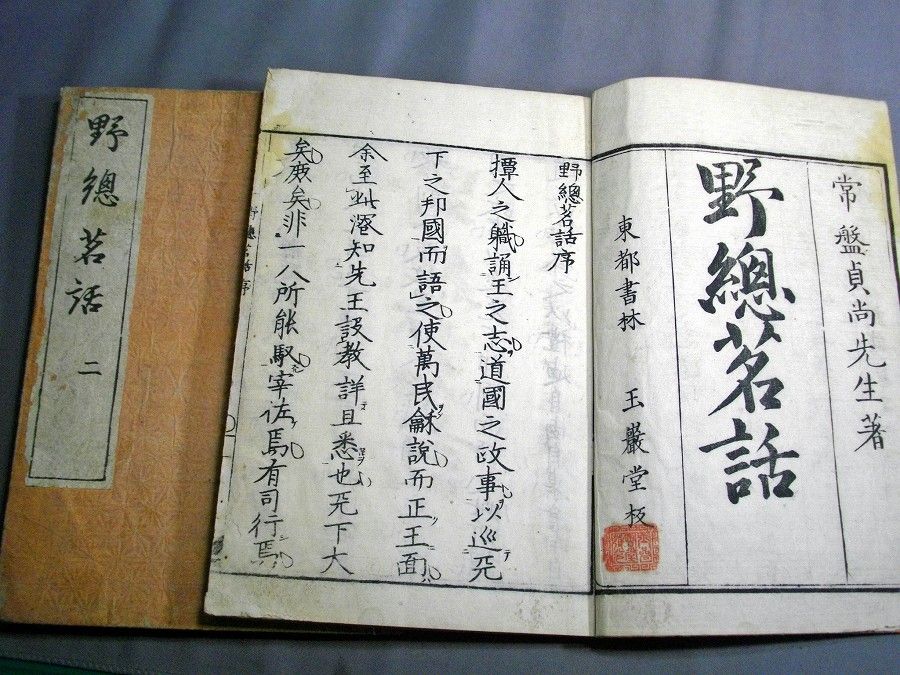 常盤貞尚先生著
野總茗話
東都書林 玉巖堂板
野總茗話序
撢人之職誦王之志道國之政事以巡天
下之邦國而語之使萬民龢說而正王面
余至此深知先王設教詳且悉也天下大
矣庶矣非一人所能馭宰佐焉有司行焉
野總茗話序
野總茗話 二